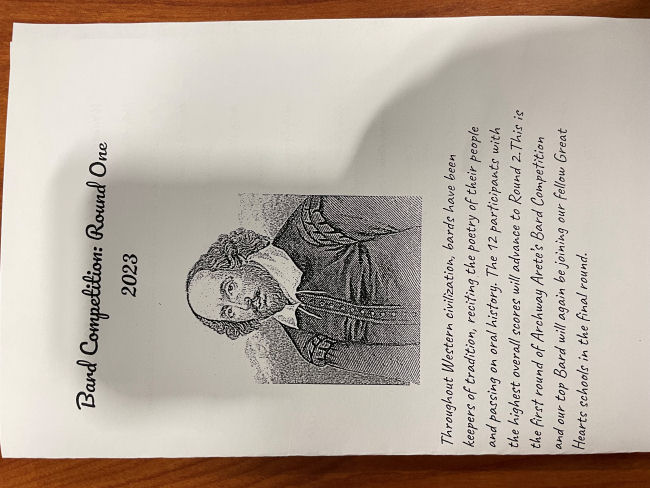 Bard Competition: Round One
2023
Throughout Western civilization, bards have been
keepers of tradition, reciting the poetry of their people
and passing on oral history. The 12 participants with
the highest overall scores will advance to Round 2.This is
the first round of Archway Arete's Bard Competition
and our top Bard will again be joining our fellow Great
Hearts schools in the final round.